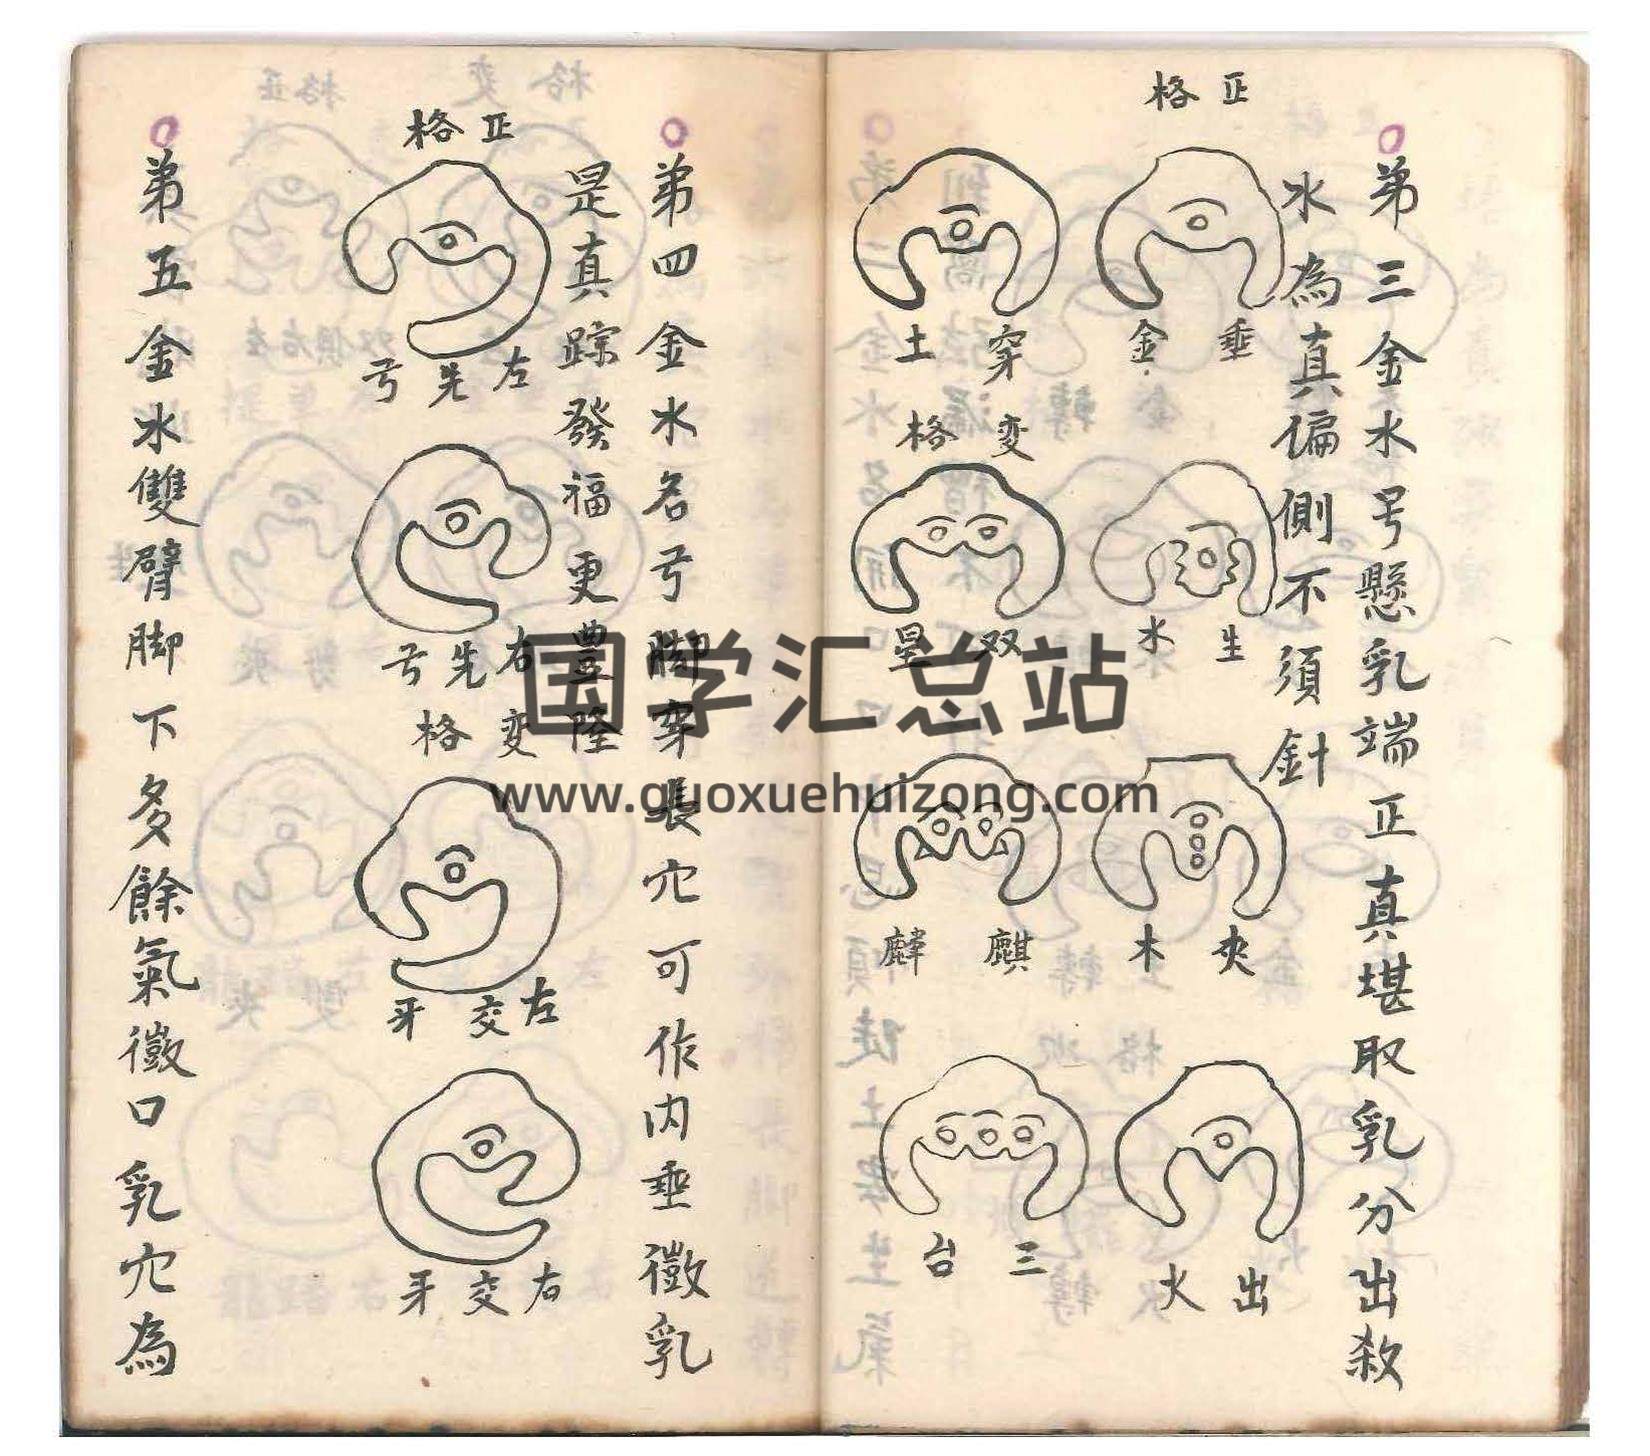 第三金水号懸乳端正真堪取乳分出殺
水為真偏側不須針
正格
垂金
生水
夾木
出火
穿土
变格
双星
麒麟
三台
第四金水名弓脚穿長穴可作内垂徵乳
是真踪發福更豊隆
正格
左先弓
右先弓
变格
左交牙
右交牙
第五金水雙臂脚下多餘氣徵口乳穴為
国学汇总站
www.guoxuehuizong.com